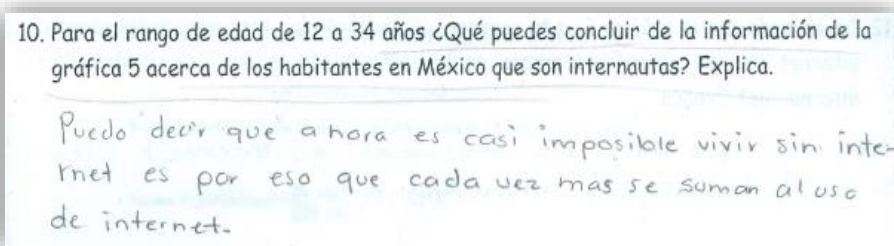 10. Para el rango de edad de 12 a 34 años ¿Qué puedes concluir de la información de la
gráfica 5 acerca de los habitantes en México que son internautas? Explica.
Puedo decir que ahora es casi imposible vivir sin inte-
rnet es por eso que cada vez mas se suman al uso
de internet.